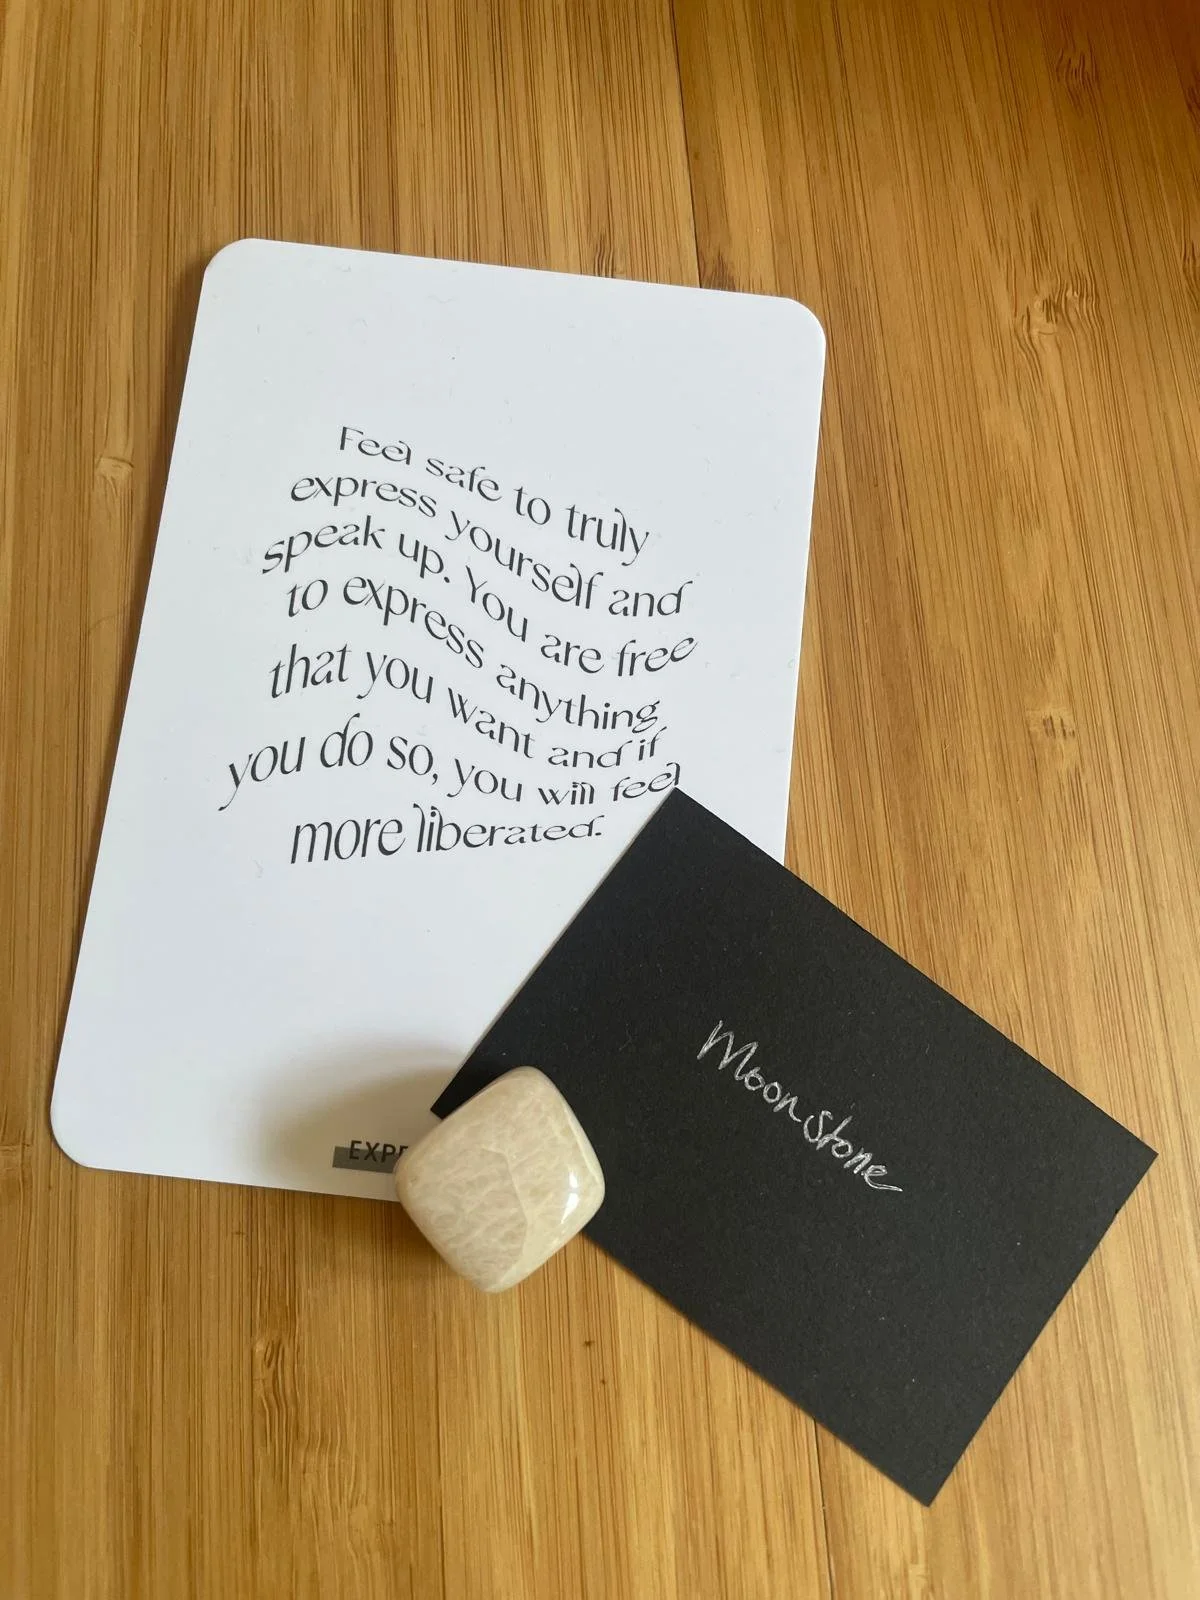 Feel safe to truly
express yourself and
speak up. You are free
to express anything
that you want and if
you do so, you will feel
more liberated.
Moonstone